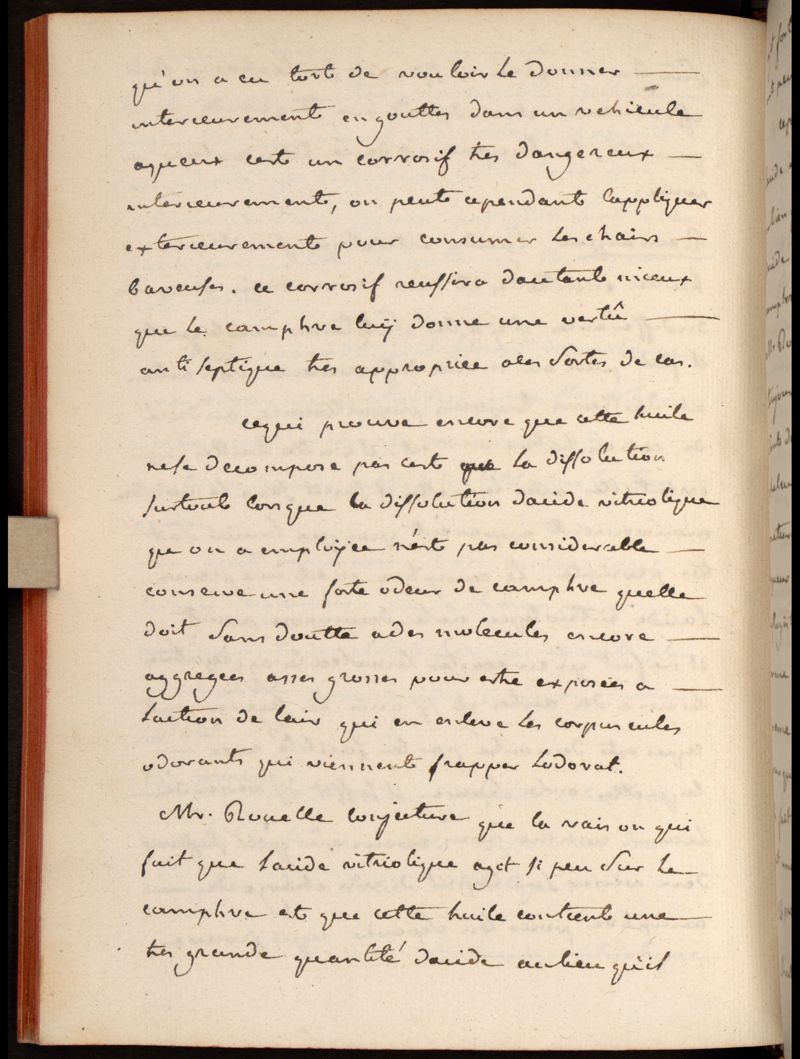 qu'on a eu tort de vouloir le donner
interieurement en gouttes dans un vehicule
aqueux cest un corrosif tres dangereux
interieurement, on peut cependant lappliquer
exterieurement pour consumer les chairs
baveuses. ce corrosif reussira dautant mieux
que le camphre luÿ donne une vertû
antiseptique tres appropriee a ces sortes de cas.
cequi prouve encore que cette huile
nese decompose pas cest que la dissolution
surtout lorsque la dissolution dacide vitriolique
que on a emploÿée n'est pas considerable
conserve une forte odeur de camphre quelle
doit sans doutte a des molecules encore
aggregées asses grosses pour estre exposées a
laction de lair qui en enleve les corpuscules
odorants qui viennent frapper lodorat.
Mr. Rouelle conjecture que la raison qui
fait que lacide vitriolique agit si peu sur le
camphre est que cette huile contient une
tres grande quantité dacide aulieu qu'il